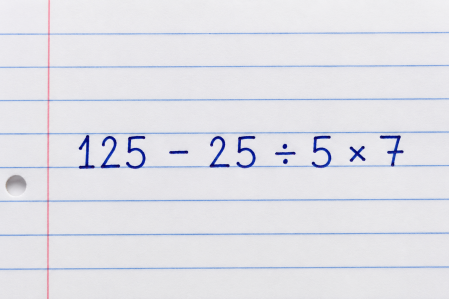 125 − 25 ÷ 5 × 7